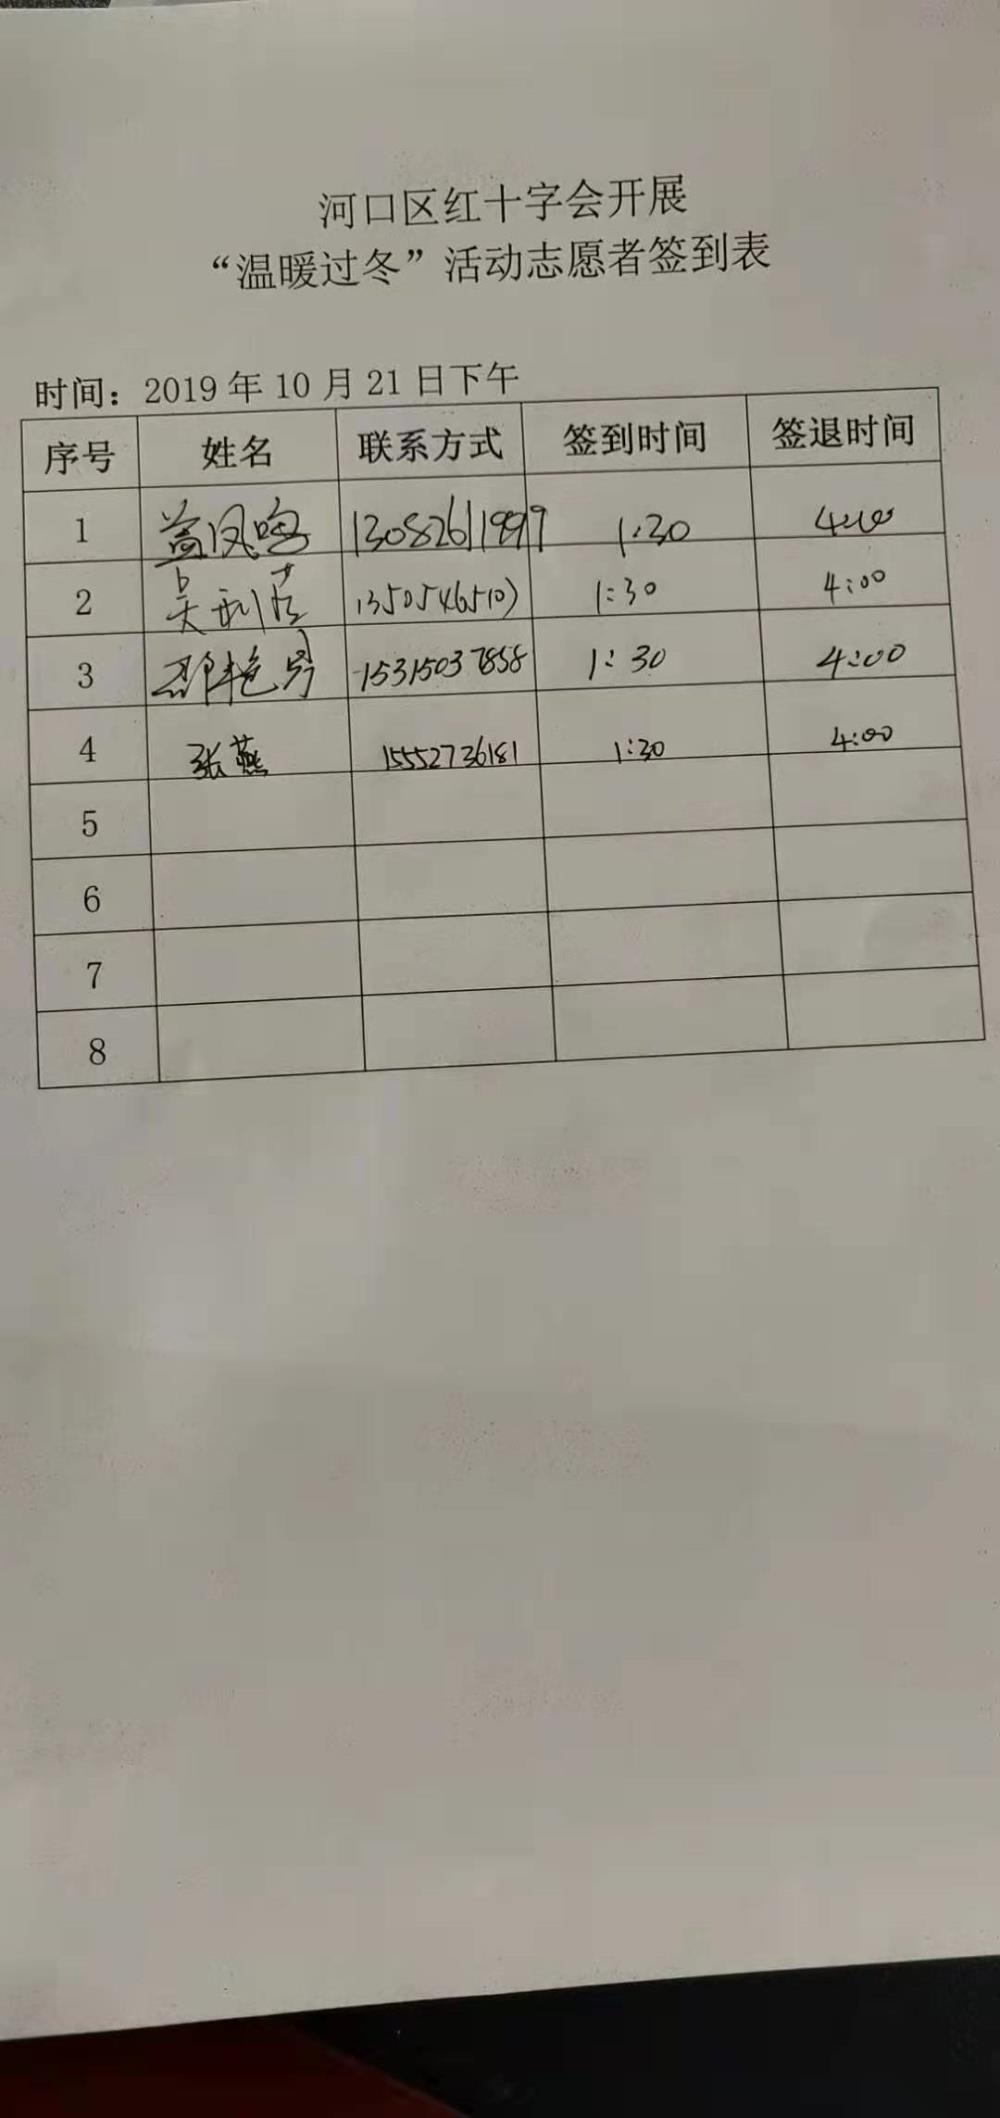 河口区红十字会开展
“温暖过冬”活动志愿者签到表
时间：2019年10月21日下午
序号 姓名 联系方式 签到时间 签退时间
1 盖凤鸣 13082611999 1:30 4:00
2 吴利 1:30 4:00
3 15315037858 1:30 4:00
4 张燕 15552736181 1:30 4:00
5
6
7
8